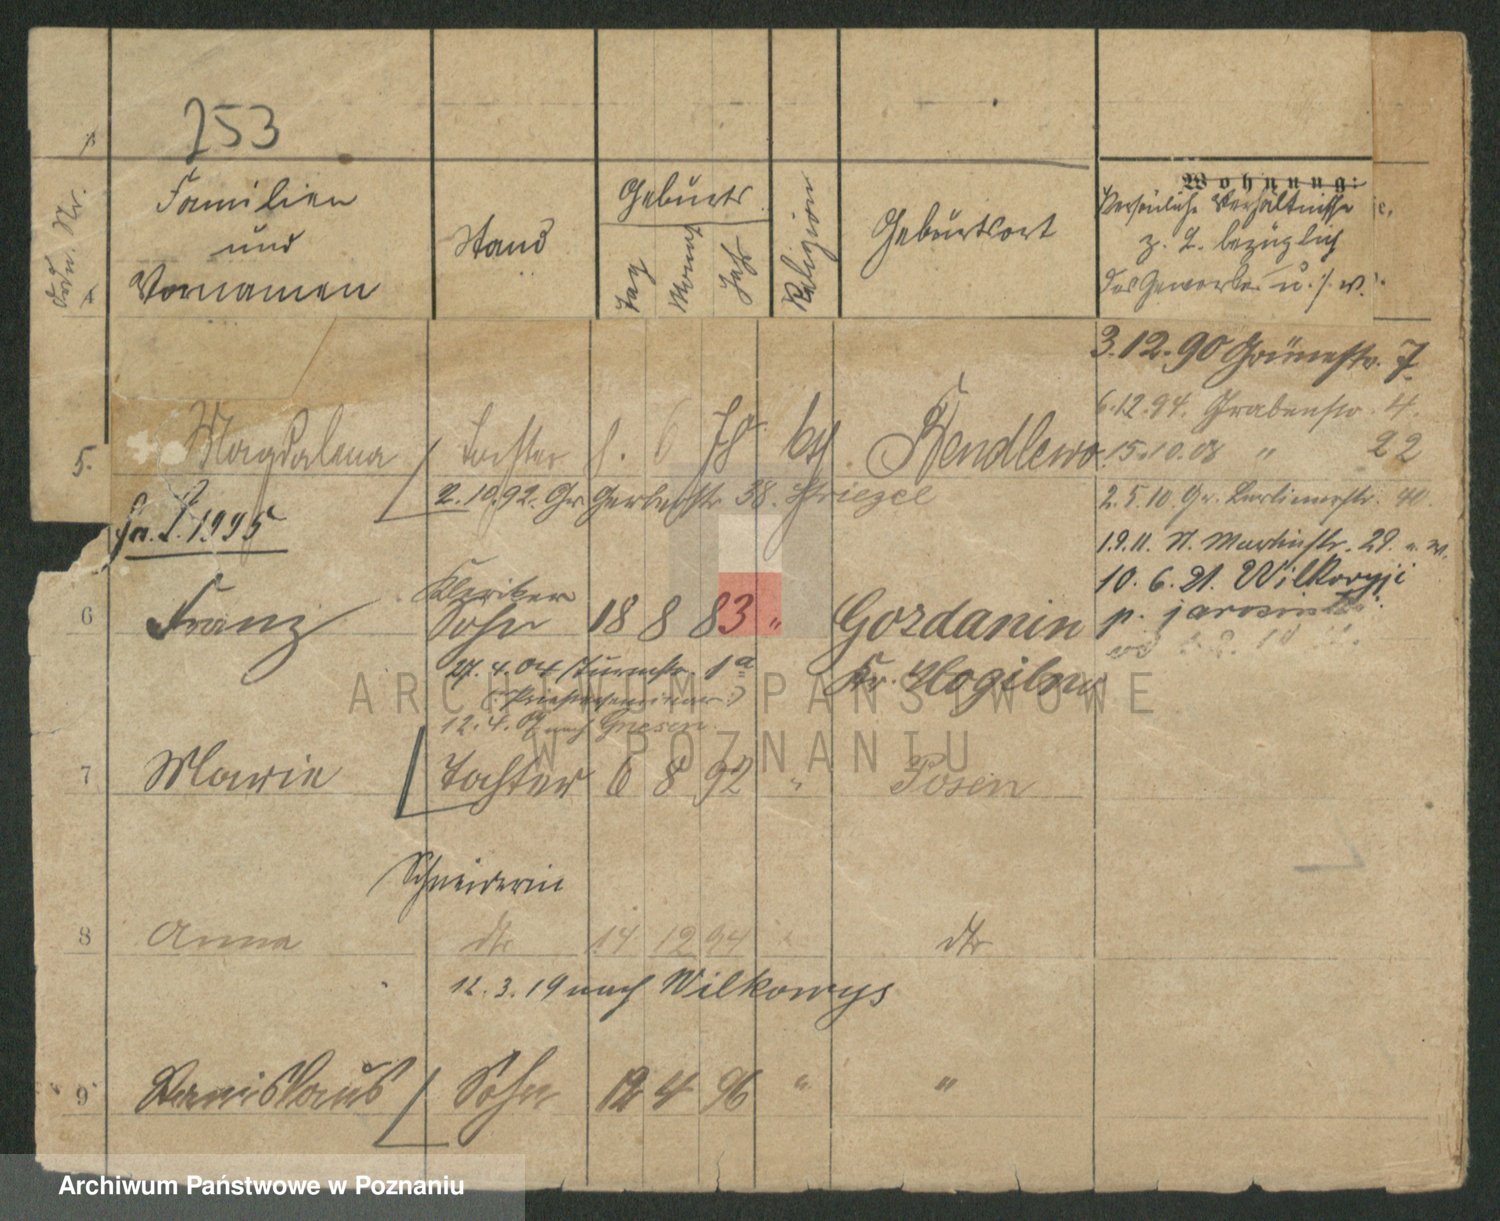 253
Lfdn. Nr.
Familien
und
Vornamen
Stand
Geburts
Tag
Monat
Jahr
Religion
Geburtsort
Wohnung:
Persönliche Verhältnisse
z. B. bezüglich
des Gewerbes u. s. w.
3.12.90 Grünestr. 7.
6.12.94. Grabenstr. 4.
15.10.08 " 22
5. Magdalena Tochter 6 78 kth. Kendlewo
2.10.92. Gr Gerberstr 38. Striegel
2.5.10. Gr. Berlinerstr. 40.
1.9.11. St. Martinstr. 29.
10.6.21. Wilkowyji
p. jarocin
Kleriker
6 Franz Sohn 18 8 83 " Gozdanin
Kr. Mogilno
27.4.04 Turmstr. 1a
(Priesterseminar)
12.4.07 nach Gnesen.
7 Marie Tochter 6 8 92 " Posen
Schneiderin
8 Anna dto 14 12 94 " dto
12.3.19 nach Wilkowys
9 Stanislaus Sohn 12 4 96 " "
ARCHIWUM PAŃSTWOWE
W POZNANIU
Archiwum Państwowe w Poznaniu